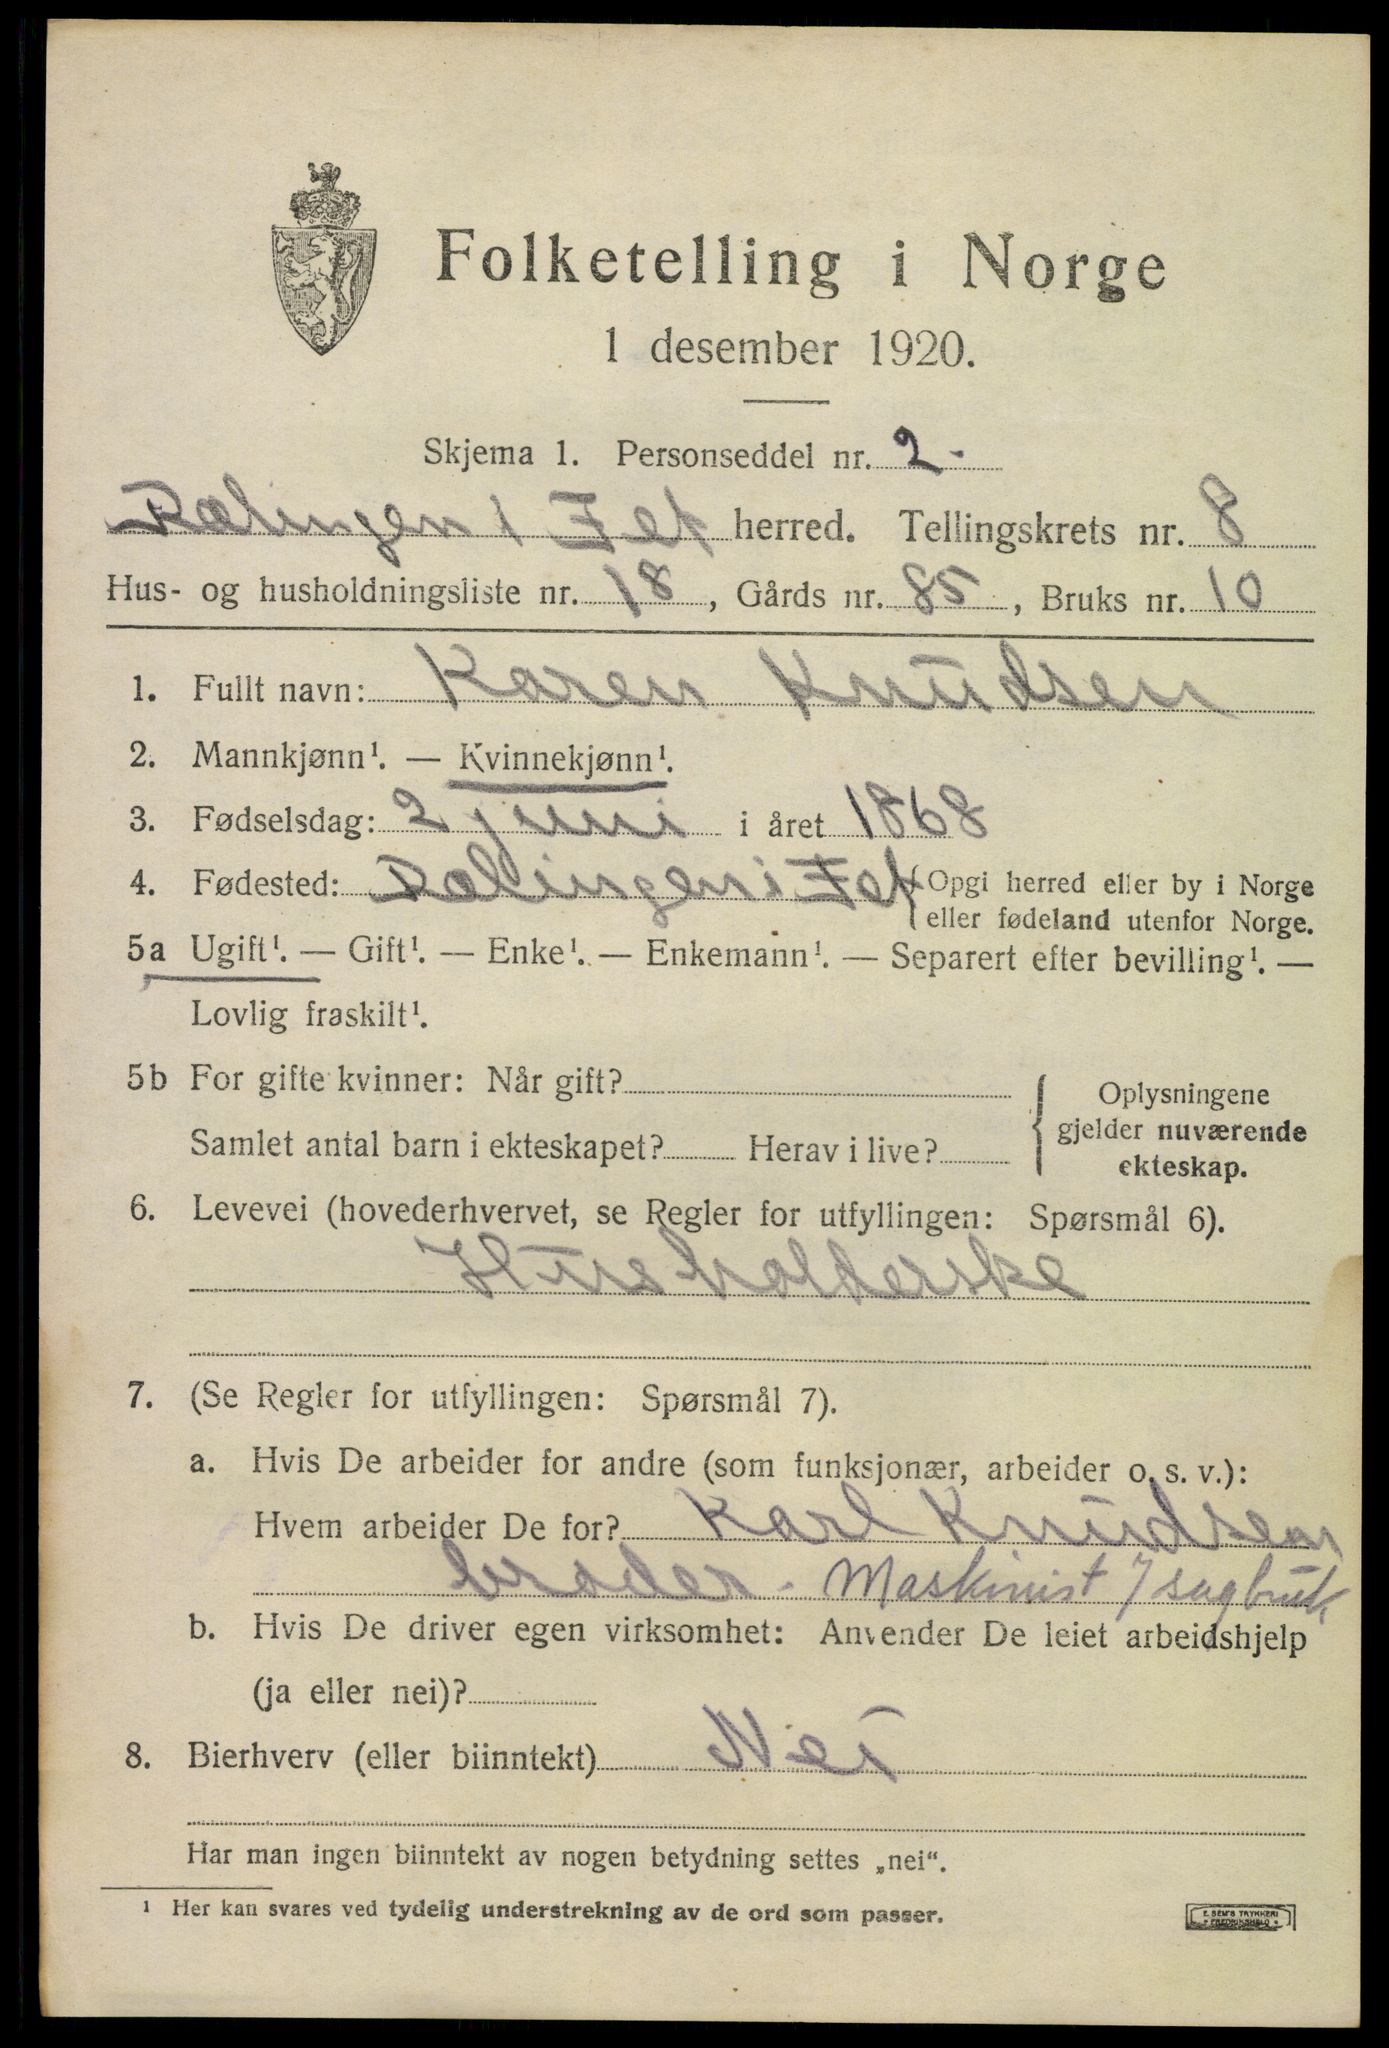 Folketelling i Norge
1 desember 1920.
Skjema 1. Personseddel nr. 2.
Rælingen i Fet herred. Tellingskrets nr. 8
Hus- og husholdningsliste nr. 18, Gårds nr. 85, Bruks nr. 10
1. Fullt navn: Karen Knudsen
2. Mannkjønn¹. — Kvinnekjønn¹.
3. Fødselsdag: 2 juni i året 1868
4. Fødested: Rælingen i Fet {Opgi herred eller by i Norge
eller fødeland utenfor Norge.
5a Ugift¹. — Gift¹. — Enke¹. — Enkemann¹. — Separert efter bevilling¹. —
Lovlig fraskilt¹.
5b For gifte kvinner: Når gift?
Samlet antal barn i ekteskapet? Herav i live?
Oplysningene
gjelder nuværende
ekteskap.
6. Levevei (hovederhvervet, se Regler for utfyllingen: Spørsmål 6).
Husholderske
7. (Se Regler for utfyllingen: Spørsmål 7).
a. Hvis De arbeider for andre (som funksjonær, arbeider o. s. v.):
Hvem arbeider De for? Karl Knudsen
broder. Maskinist / sagbruk
b. Hvis De driver egen virksomhet: Anvender De leiet arbeidshjelp
(ja eller nei)?
8. Bierhverv (eller biinntekt) Nei
Har man ingen biinntekt av nogen betydning settes „nei“.
¹ Her kan svares ved tydelig understrekning av de ord som passer.
E. SEM'S TRYKKERI
• FREDRIKSHALD •